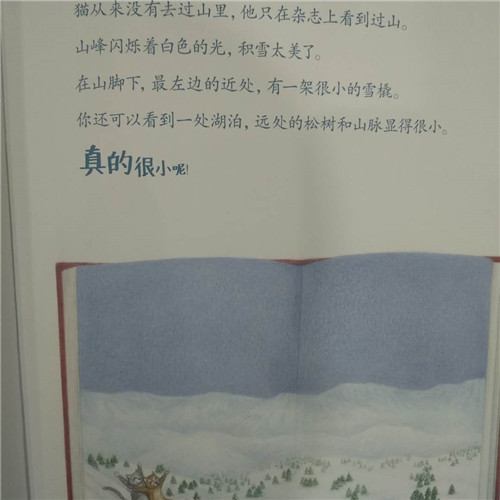 猫从来没有去过山里，他只在杂志上看到过山。
山峰闪烁着白色的光，积雪太美了。
在山脚下，最左边的近处，有一架很小的雪橇。
你还可以看到一处湖泊，远处的松树和山脉显得很小。
真的很小呢！